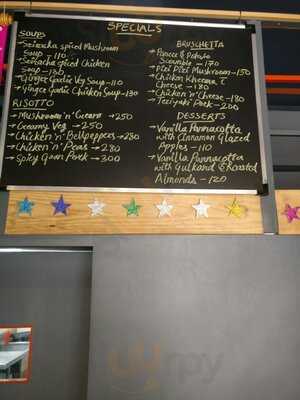 SPECIALS
SOUPS
Sriracha spiced Mushroom
Soup - 110
Sriracha spiced chicken
Soup - 130
Ginger Garlic Veg Soup - 110
Ginger Garlic Chicken Soup - 130
RISOTTO
Mushroom 'n' Cream → 250
Creamy Veg → 250
Chicken 'n' Bellpeppers → 280
Chicken 'n' Peas → 280
Spicy Goan Pork → 300
BRUSCHETTA
& Potato
Scramble - 170
Piri Piri Mushroom - 150
Chicken Kheema &
Cheese - 180
Chicken 'n' Cheese - 180
Teriyaki Pork - 200
DESSERTS
Vanilla Pannacotta
with Cinnamon Glazed
Apples - 110
Vanilla Pannacotta
with Gulkand & Roasted
Almonds - 120